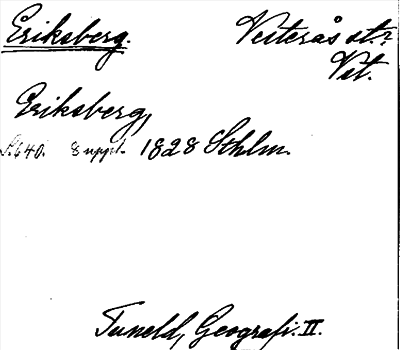 Eriksberg. Vesterås st.?
Vst.
Eriksberg,
S. 640. 8 uppl. 1828 Sthlm.
Tuneld, Geografi. II.